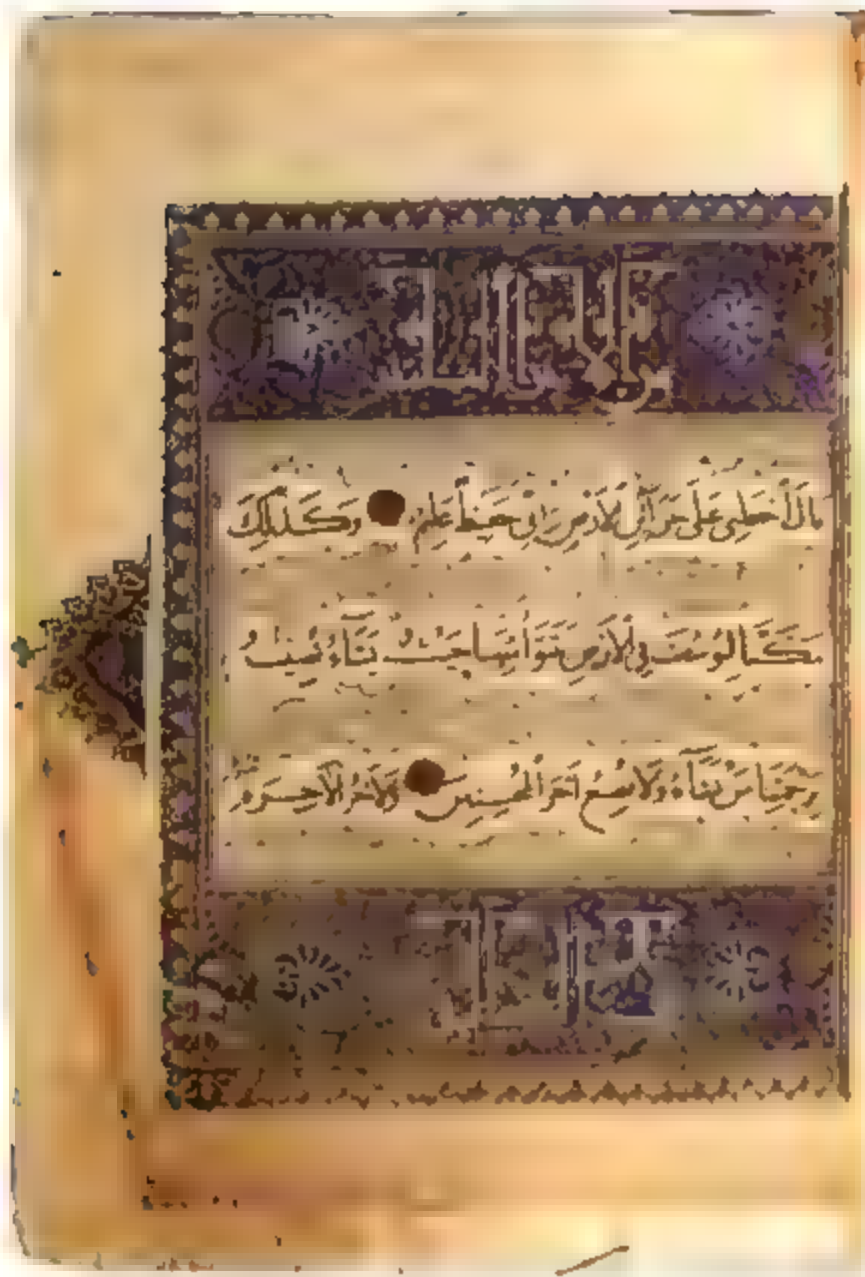 قال اجعلني على خزائن الارض اني حفيظ عليم وكذلك
مكنا ليوسف في الارض يتبوأ منها حيث يشاء نصيب
برحمتنا من نشاء ولا نضيع اجر المحسنين ولاجر الآخرة